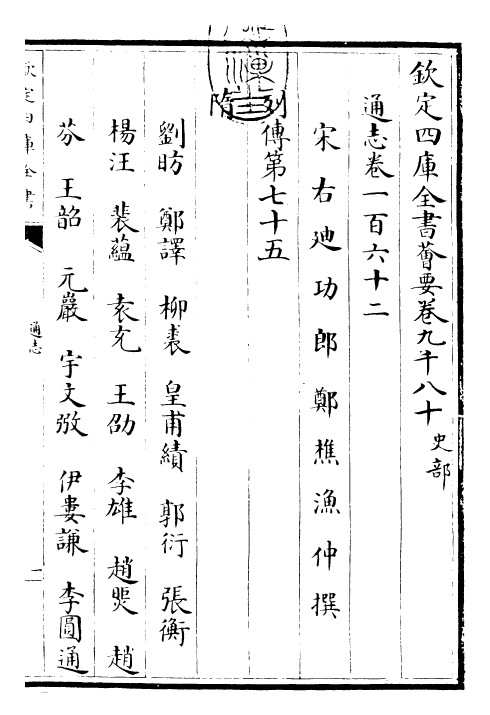 欽定四庫全書薈要卷九千八十 史部
通志卷一百六十二
宋右迪功郎鄭樵漁仲撰
列傳第七十五
隋
劉昉 鄭譯 柳裘 皇甫績 郭衍 張衡
楊汪 裴蘊 袁充 王劭 李雄 趙煚 趙
芬 王韶 元巖 宇文㢸 伊婁謙 李圓通
欽定四庫全書
通志